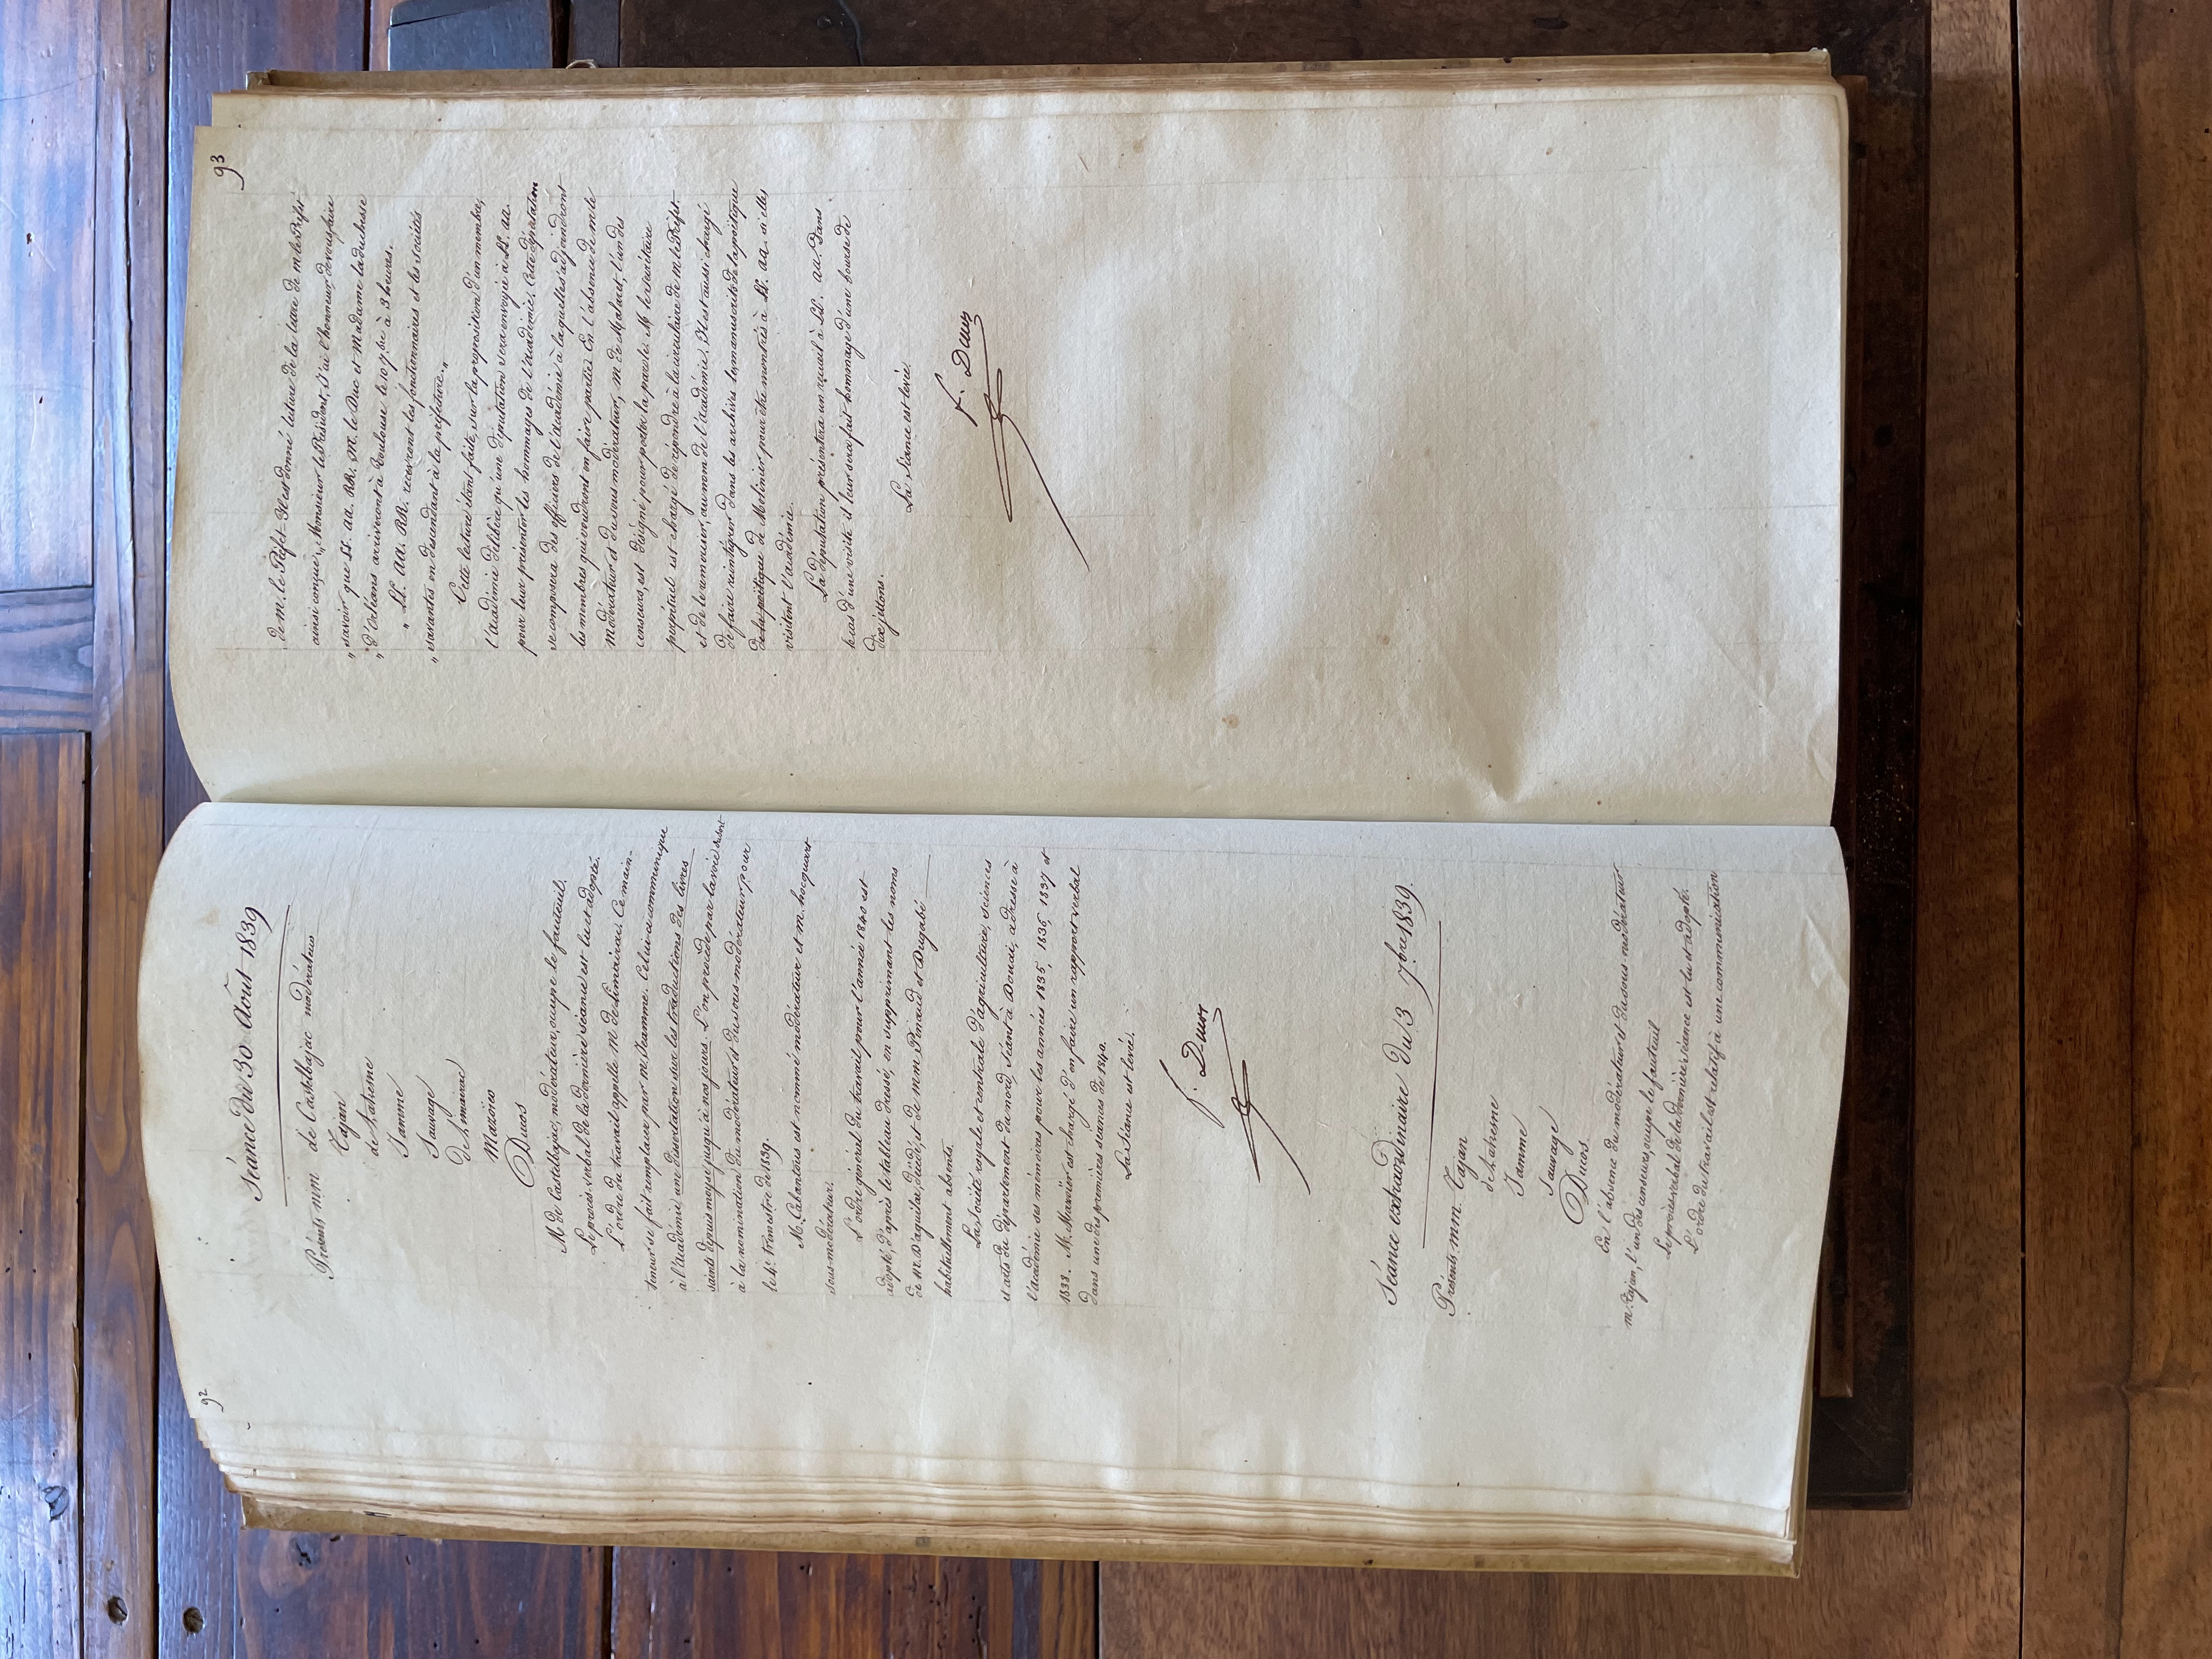 92
Séance du 30 Août 1839
Présents mm de Castelbajac modérateur
Tajan
de Latresne
Jamme
Sauvage
de Limairac
Marvöier
Ducos
M. de Castelbajac, modérateur, occupe le fauteuil.
Le procès-verbal de la dernière séance est lu et adopté.
L'ordre du travail appelle M. de Limairac. Ce main-
teneur se fait remplacer par M. Jamme. Celui-ci communique
à l'académie une dissertation sur les traductions des livres
saints depuis moyse jusqu'à nos jours. L'on procède par la voie du scrut.
à la nomination du modérateur et du sous-modérateur pour
le 4e trimestre de 1839.
M. Cabantous est nommé modérateur et M. hocquart
sous-modérateur.
L'ordre général du travail pour l'année 1840 est
adopté, d'après le tableau dressé, en supprimant les noms
de M. D'aguilar, décédé, et de MM Pinaud et Dugabé
habituellement absents.
La Société royale et centrale d'agriculture, sciences
et arts du département du nord, séant à Douai, adresse à
l'académie ses mémoires pour les années 1835, 1836, 1837 et
1838. M. Marvöier est chargé d'en faire un rapport verbal
dans une des premières séances de 1840.
La Séance est levée.
F. Ducos
Séance extraordinaire du 3 7.bre 1839.
Présents, mm. Tajan
de Latresne
Jamme
Sauvage
Ducos
En l'absence du modérateur et du sous-modérateur
m. Tajan, l'un des censeurs, occupe le fauteuil
Le procès-verbal de la dernière séance est lu et adopté.
L'ordre du travail est relatif à une communication
93
de m. le Préfet. Il est donné lecture de la lettre de m le Préfet
ainsi conçue „ Monsieur le Président, J'ai l'honneur de vous faire
„ savoir que LL. AA. RR. M. le Duc et Madame la duchesse
„ d'Orléans arriveront à Toulouse le 10 7.bre à 3 heures.
„ LL. AA. RR. recevront les fonctionnaires et les sociétés
„ savantes en descendant à la préfecture. „
Cette lecture étant faite, sur la proposition d'un membre,
l'académie délibère qu'une députation sera envoyée à LL. AA.
pour leur présenter les hommages de l'académie. Cette députation
se composera des officiers de l'académie à laquelle s'adjoindront
les membres qui voudront en faire partie. En l'absence de M. le
modérateur et du sous modérateur, M. de Malaret, l'un des
censeurs, est désigné pour porter la parole. M le secrétaire
perpétuel est chargé de répondre à la circulaire de M le Préfet
et de le remercier, au nom de l'académie. Il est aussi chargé
de faire réintégrer dans les archives les manuscrits de la poëtique
de la poëtique de Molinier pour être montrés à LL. AA. si elles
visitent l'académie.
La députation présentera un recueil à LL. AA. dans
le cas d'une visite il leur sera fait hommage d'une bourse de
dix jettons.
La Séance est levée.
F. Ducos